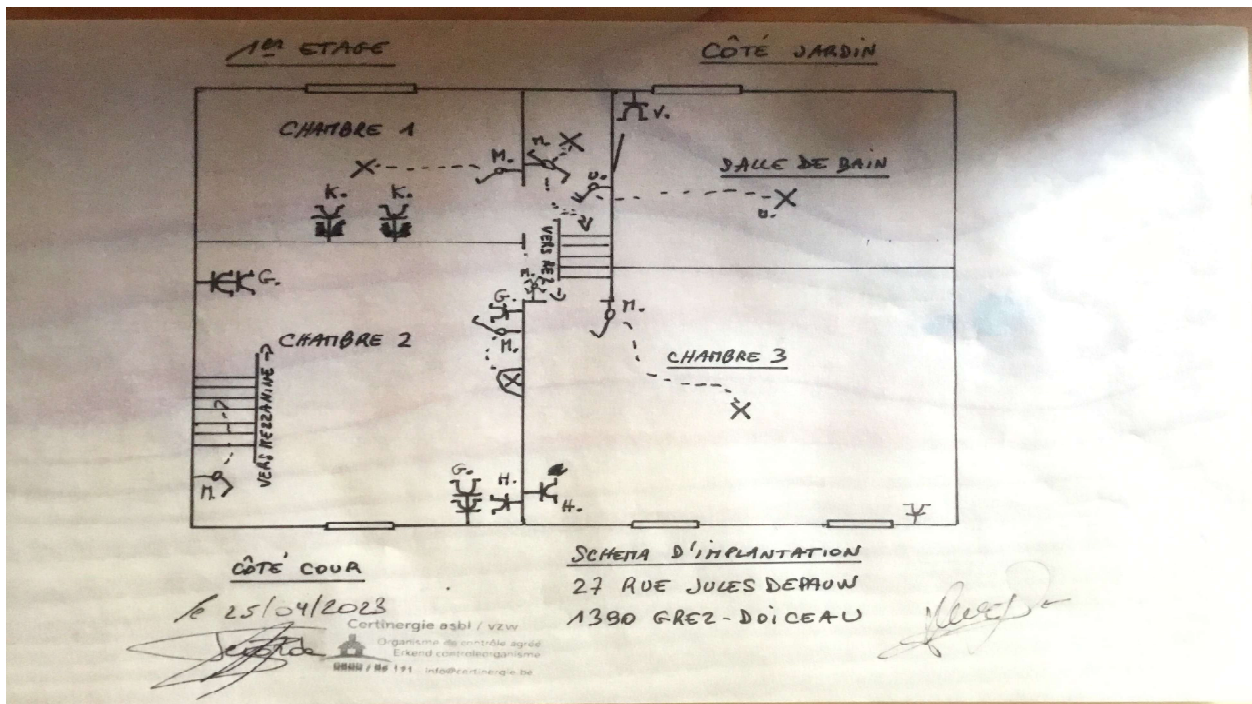 1er ETAGE
CÔTÉ JARDIN
V.
CHAMBRE 1
M.
M.
SALLE DE BAIN
K. K.
U.
U.
VERS REZ →
G.
G.
M.
M.
CHAMBRE 2
CHAMBRE 3
VERS MEZZANINE →
M.
G.
H.
H.
CÔTÉ COUR
SCHEMA D'IMPLANTATION
27 RUE JULES DEPAUW
1390 GREZ-DOICEAU
le 25/04/2023
Certinergie asbl / vzw
Organisme de contrôle agréé
Erkend controleorganisme
info@certinergie.be